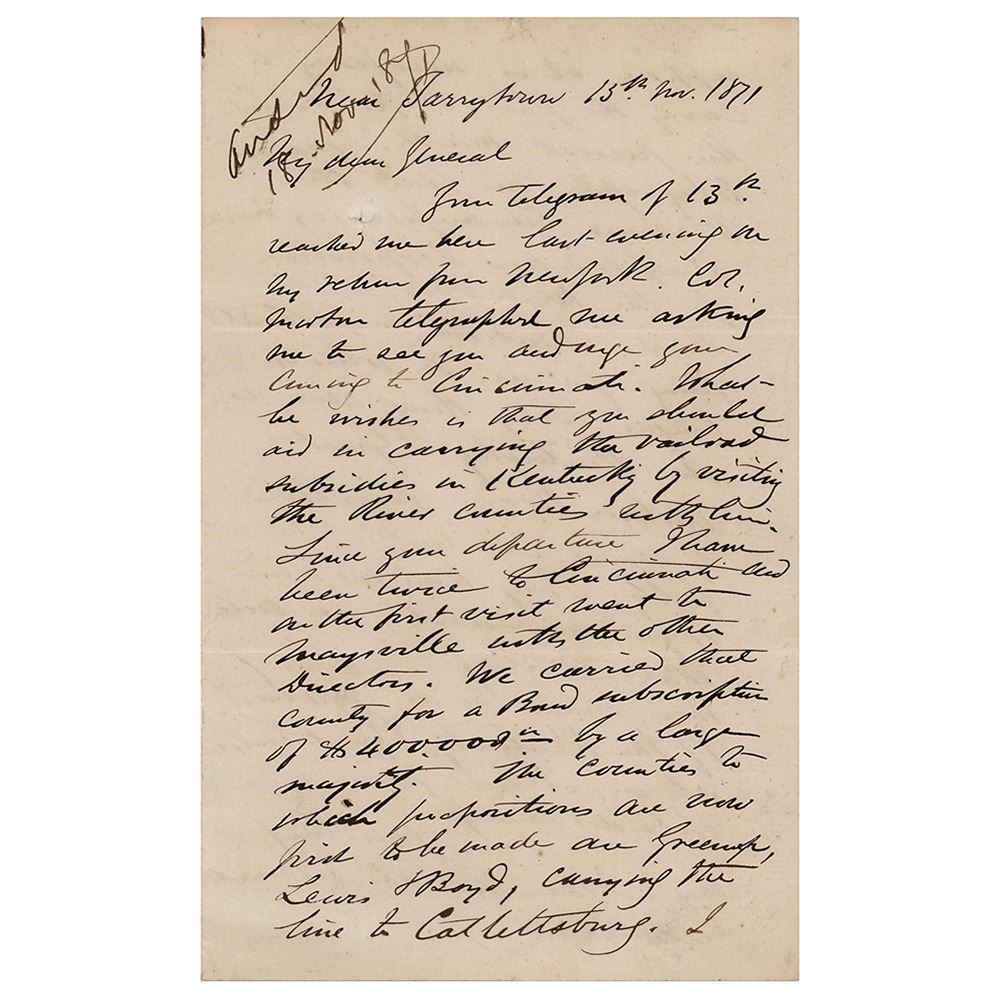 Ansd
18. Nov. 1871
Near Tarrytown 15th Nov. 1871
My dear General
Your telegram of 13th
reached me here last evening on
my return from New York. Col.
Morton telegraphed me asking
me to see you and urge your
coming to Cincinnati. What
he wishes is that you should
aid in carrying the railroad
subsidies in Kentucky by visiting
the River counties with him.
Since your departure I have
been twice to Cincinnati and
on the first visit went to
Maysville with the other
Directors. We carried that
county for a Bond subscription
of $400000 by a large
majority. The counties to
which propositions are now
first to be made are Greenup,
Lewis & Boyd, carrying the
line to Catlettsburg. I